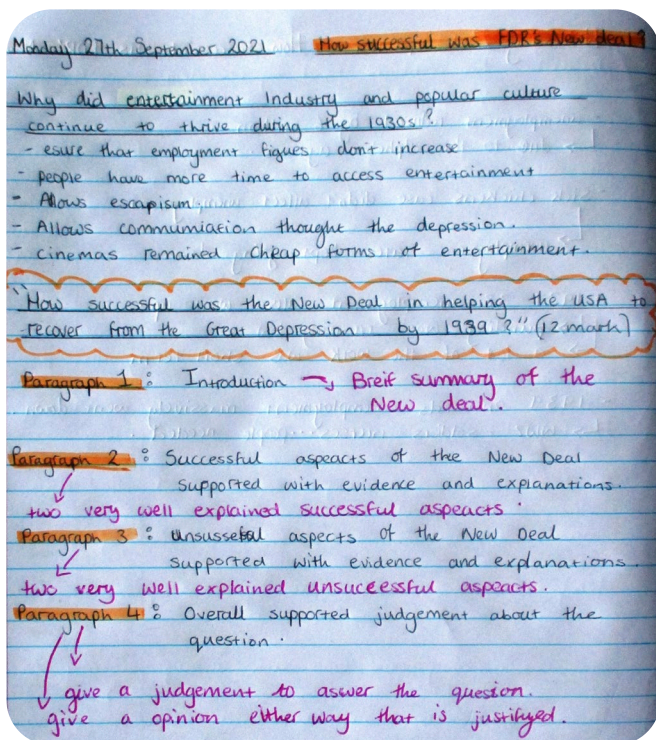 Monday 27th September 2021 How successful was FDR's New deal?
Why did entertainment Industry and popular culture
continue to thrive during the 1930s?
- esure that employment figues don't increase
- people have more time to access entertainment
- Allows escapisum.
- Allows communiation thought the depression.
- cinemas remained cheap forms of entertainment.
"How successful was the New Deal in helping the USA to
recover from the Great Depression by 1939?" (12 mark)
Paragraph 1: Introduction → Breif summary of the
New deal.
Paragraph 2: Successful aspeacts of the New Deal
supported with evidence and explanations.
two very well explained successful aspeacts.
Paragraph 3: unsussesful aspects of the New Deal
supported with evidence and explanations.
two very well explained unsuccessful aspeacts.
Paragraph 4: Overall supported judgement about the
question.
give a judgement to aswer the question.
give a opinion either way that is justifyed.